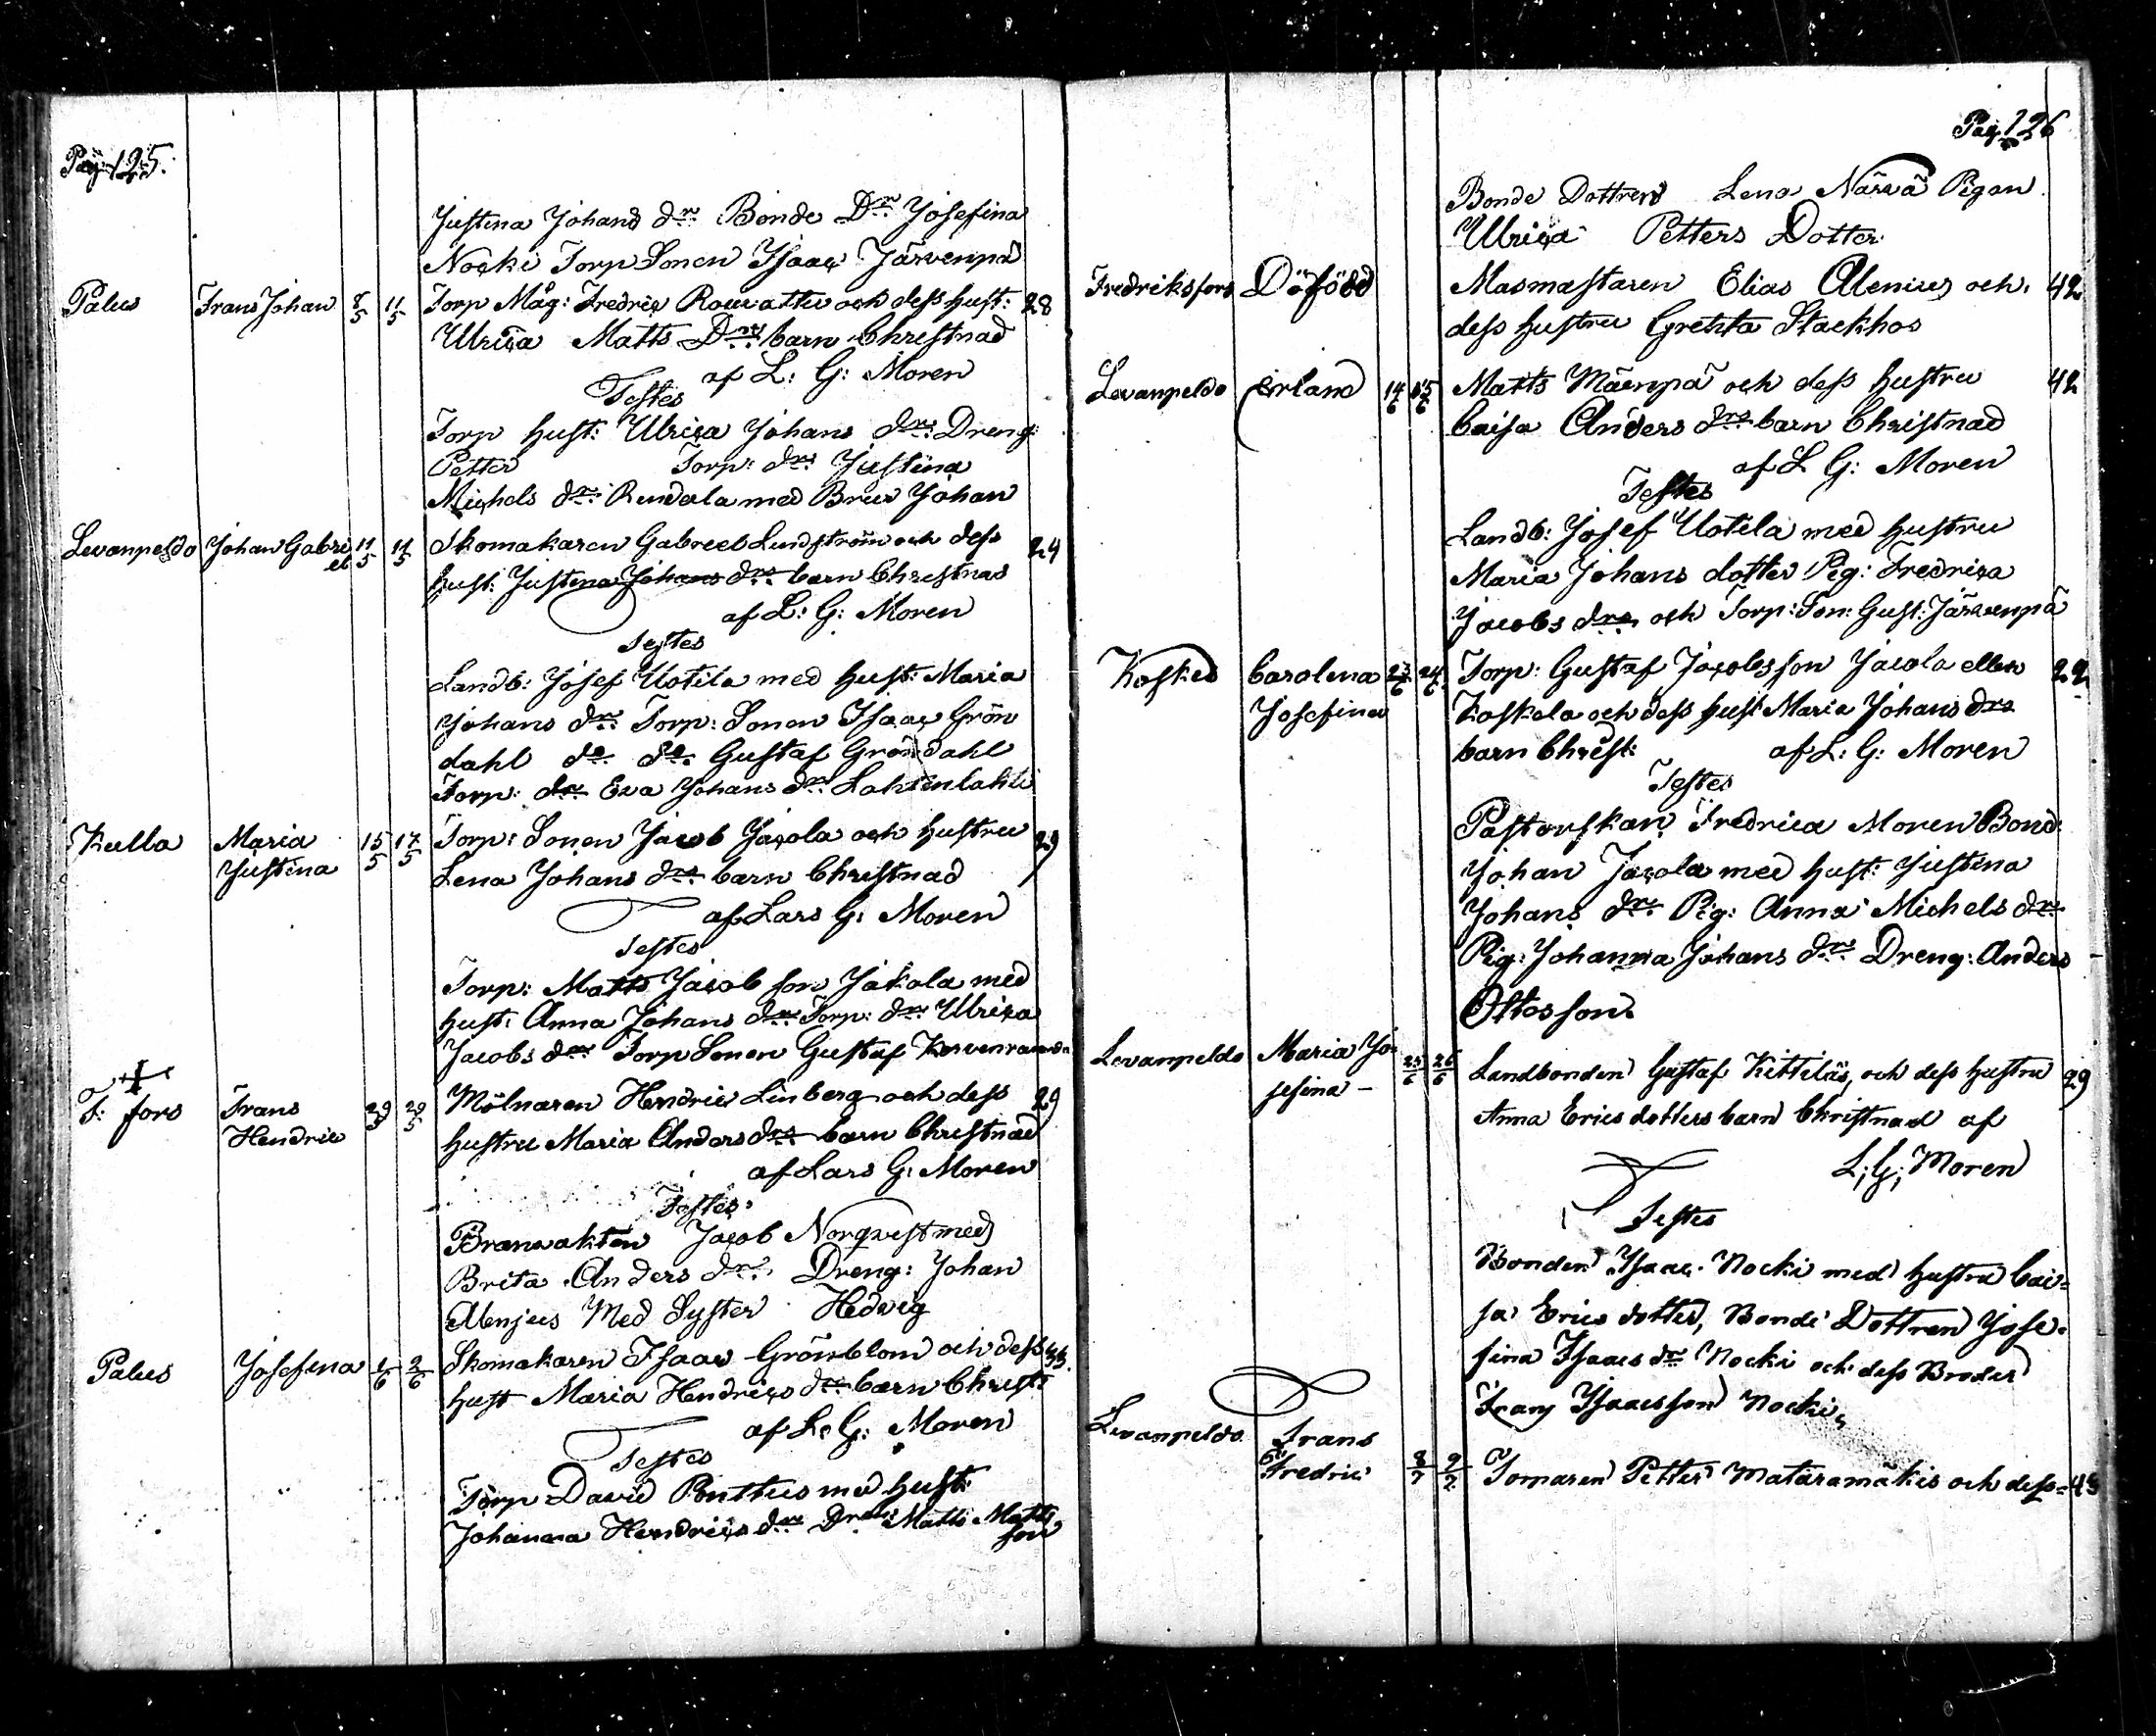 Pag: 125.
Justina Johans drn Bonde Drn Josefina
Nocki Torp Sonen Isaac Järvenpä
Palus Frans Johan 8/5 11/5 Torp Måg: Fredric Rouvatts och dess hust: 28
Ulrica Matts Drns barn Christnad
af L: G: Moren
Testes
Torp hust: Ulrica Johans drn: Dreng:
Petter Torp: drn Justina
Michels drn: Rendala med Brur Johan
Levanpeldo Johan Gabri 11/5 11/5 Skomakaren Gabriel Lundström och dess 24
el hust: Justina Johans drns barn Christnas
af L: G: Moren
Testes
Landb: Josef Uotila med hust: Maria
Johans drn Torp: Sonen Isaac Grön
dahl do do Gustaf Gröndahl
Torp: drn Eva Johans drn Lahtenlahti
Kulla Maria 15/5 17/5 Torp: Sonen Jacob Jacola och hustru 29
Justina Lena Johans drns barn Christnad
af Lars G: Moren
Testes
Torp: Matts Jacob son Jakola med
hust: Anna Johans drn Torp: drn Ulrica
Jacobs drn Torp Sonen Gustaf
F: fors Frans 29/5 29/5 Mölnaren Hendric Linberg och dess 29
Hendric hustru Maria Anders drns barn Christnad
af Lars G: Moren
Testes
Branvakten Jacob Norqvest med
Brita Anders drn: Dreng: Johan
Alenjus Med Syster Hedvig
Palus Josefina 1/6 2/6 Skomakaren Isaac Grönblom och dess
hust Maria Hendrics drns barn Christ:
af L: G: Moren
Testes
Torp David Ponttus med hust:
Johanna Hendrics drn Matts Matts
son
Pag: 126
Bonde Dottren Lena Närvä Pigan
Ulrica Petters Dotter
Fredriksfors Döfödd Masmastaren Elias Alenius och 42
dess hustru Gretta Stackhos
Levanpeldo Erland 14/6 15/6 Matts Mäenpä och dess hustru 42
Caisa Anders drns barn Christnad
af L G: Moren
Testes
Landb: Josef Uotila med hustru
Maria Johans dotter Pig: Fredrica
Jacobs drn och Torp: Son: Gust: Järvenpä
Koskis Carolina 23/6 24/6 Torp: Gustaf Jacobsson Jacola eller 22
Josefina Koskela och dess hust Maria Johans drs
barn Christ: af L: G: Moren
Testes
Pastorskan Fredrica Moren Bond:
Johan Jacola med hust: Justina
Johans drn Pig: Anna Michels drn
Pig: Johanna Johans drn Dreng: Anders
Ottosson.
Levanpeldo Maria Jo= 25/6 26/6 Landbonden Gustaf Kittiläs, och dess hustru 29
sefina – Anna Erics dotters barn Christnad af
L; G; Moren
Testes
Bonden Isaac Nocki med hustru Cai=
sa Erics dotter, Bonde Dottren Jose=
fina Isaacs dr Nocki och dess Broder
Frans Isaacsson Nocki,
Levanpeldo Frans
Fredric 8/7 9/7 Tomaren Petter Mataramäkis och dess=